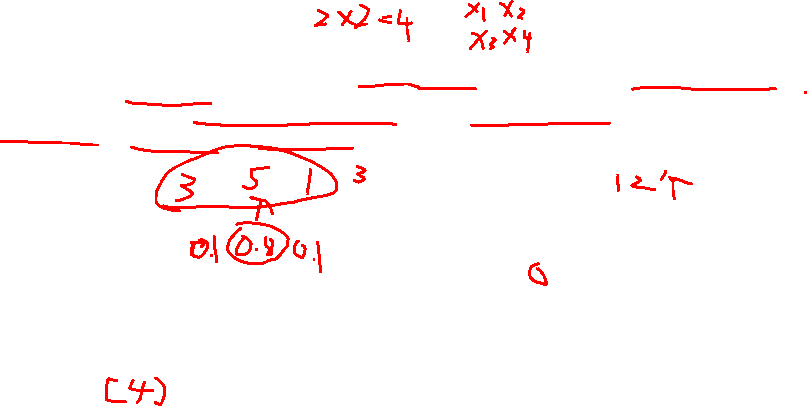 2×2=4 x1 x2
x3 x4
3 5 1 3
12个
0.1 0.8 0.1
0
[4)